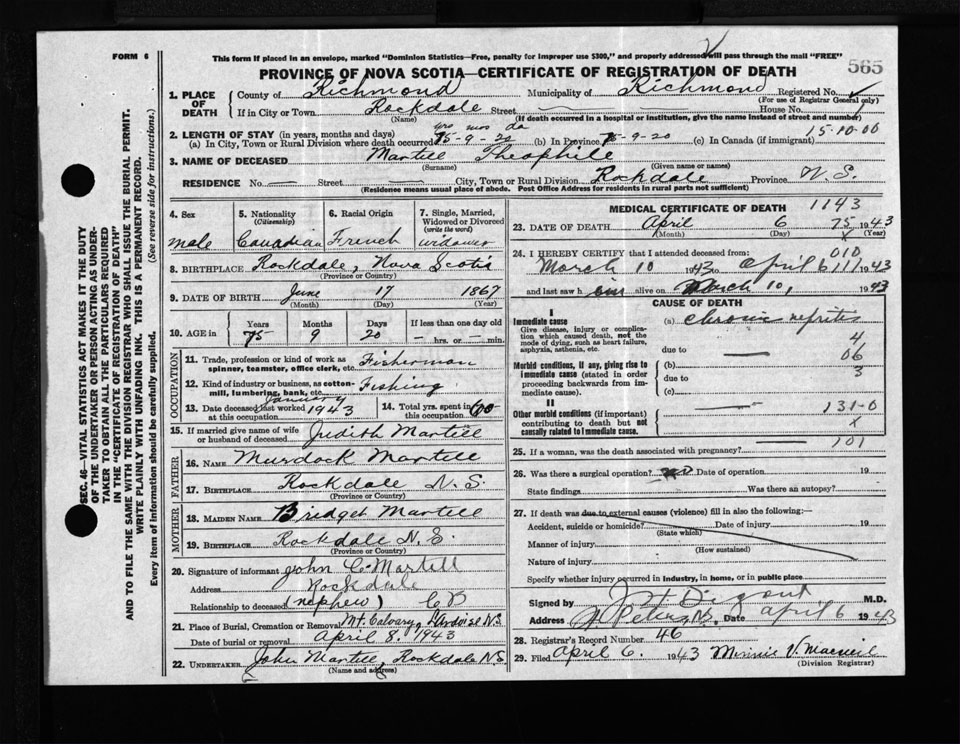 FORM 6
This form if placed in an envelope, marked "Dominion Statistics—Free, penalty for improper use $300," and properly addressed will pass through the mail "FREE"
565
PROVINCE OF NOVA SCOTIA—CERTIFICATE OF REGISTRATION OF DEATH
1. PLACE OF DEATH
County of Richmond Municipality of Richmond Registered No.
(For use of Registrar General only)
If in City or Town Rockdale Street — House No.
(Name) (If death occurred in a hospital or institution, give the name instead of street and number)
2. LENGTH OF STAY (in years, months and days) yrs mos da 15-10-00
(a) In City, Town or Rural Division where death occurred 75-9-20 (b) In Province 75-9-20 (c) In Canada (if immigrant)
3. NAME OF DECEASED Martell Theophile
(Surname) (Given name or names)
RESIDENCE No. — Street — City, Town or Rural Division Rockdale Province N.S.
(Residence means usual place of abode. Post Office Address for residents in rural parts not sufficient)
4. Sex
male
5. Nationality
(Citizenship)
Canadian
6. Racial Origin
French
7. Single, Married, Widowed or Divorced
(write the word)
widower
8. BIRTHPLACE Rockdale, Nova Scotia
(Province or Country)
9. DATE OF BIRTH June 17 1867
(Month) (Day) (Year)
10. AGE in
Years Months Days If less than one day old
75 9 20 — hrs. or — min.
OCCUPATION
11. Trade, profession or kind of work as spinner, teamster, office clerk, etc. Fisherman
12. Kind of industry or business, as cotton-mill, lumbering, bank, etc. Fishing
13. Date deceased last worked at this occupation January 1943
14. Total yrs. spent in this occupation 60
15. If married give name of wife or husband of deceased Judith Martell
FATHER
16. NAME Murdock Martell
17. BIRTHPLACE Rockdale N.S.
(Province or Country)
MOTHER
18. MAIDEN NAME Bridget Martell
19. BIRTHPLACE Rockdale N.S.
(Province or Country)
20. Signature of informant John C. Martell
Address Rockdale
Relationship to deceased (nephew) C B
21. Place of Burial, Cremation or Removal Mt. Calvary, L'Ardoise N.S.
Date of burial or removal April 8, 1943
22. UNDERTAKER John Martell, Rockdale N.S.
(Name and address)
MEDICAL CERTIFICATE OF DEATH 1143
23. DATE OF DEATH April 6 75 1943
(Month) (Day) X (Year)
24. I HEREBY CERTIFY that I attended deceased from: 010
March 10 1943 to April 6 111 1943
and last saw h im alive on March 10, 1943
CAUSE OF DEATH
I
Immediate cause
Give disease, injury or complication which caused death, not the mode of dying, such as heart failure, asphyxia, asthenia, etc.
(a) chronic nefritis
4
due to —
Morbid conditions, if any, giving rise to immediate cause (stated in order proceeding backwards from immediate cause)
(b) 06
due to 3
(c)
II
Other morbid conditions (if important) contributing to death but not causally related to immediate cause.
131-0
X
25. If a woman, was the death associated with pregnancy? 101
26. Was there a surgical operation? no Date of operation 19
State findings Was there an autopsy?
27. If death was due to external causes (violence) fill in also the following:—
Accident, suicide or homicide? Date of injury 19
(State which)
Manner of injury
(How sustained)
Nature of injury
Specify whether injury occurred in industry, in home, or in public place
Signed by M.D.
Address St. Peters, N.S. Date April 6 1943
28. Registrar's Record Number 46
29. Filed April 6 1943 Minnie V. Macneil
(Division Registrar)
SEC. 46—VITAL STATISTICS ACT MAKES IT THE DUTY
OF THE UNDERTAKER OR PERSON ACTING AS UNDER-
TAKER TO OBTAIN ALL THE PARTICULARS REQUIRED
IN THE "CERTIFICATE OF REGISTRATION OF DEATH"
AND TO FILE THE SAME WITH THE DIVISION REGISTRAR WHO SHALL ISSUE THE BURIAL PERMIT.
WRITE PLAINLY WITH UNFADING INK. THIS IS A PERMANENT RECORD.
Every item of information should be carefully supplied. (See reverse side for instructions.)